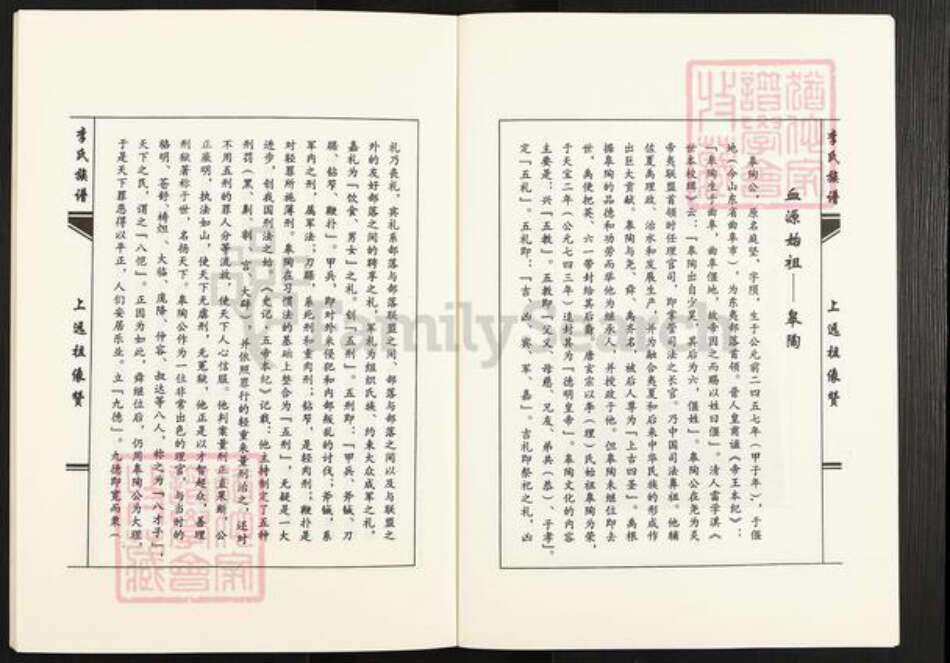 李氏族谱
上远祖像赞
血源始祖——皋陶
皋陶公，原名庭坚，字陨，生于公元前二四五七年（甲子年），于偃
地（今山东省曲阜市），为东夷部落首领。晋人皇甫谧《帝王本纪》：
「皋陶生于曲阜，曲阜偃地，故帝因之而赐以姓曰偃」。清人雷学淇《
世本校辑》云：「皋陶出自少昊，其后为六，偃姓」。皋陶公在尧为炎
帝夷联盟首领时任理官司，即掌管司法之长官。乃中国司法鼻祖。他辅
佐夏禹理政、治水和发展生产，并为融合夷夏和后来中华民族的形成作
出巨大贡献。皋陶与尧、舜、禹齐名，被后人尊为「上古四圣」。禹根
据皋陶的品德和功劳而举他为继承人，并授政于他。但皋陶未继位即去
世，禹便把英、六一带封给其后裔。唐玄宗以李（理）氏始祖皋陶为荣，
于天宝二年（公元七四三年）追封其为「德明皇帝」。皋陶文化的内容
主要是：兴「五教」。五教即「父义、母慈、兄友、弟共（恭）、子孝」。
定「五礼」。五礼即：「吉、凶、宾、军、嘉」。吉礼即祭祀之礼，凶
礼乃丧礼，宾礼系部落与部落联盟之间、部落与部落之间以及与联盟之
外的友好部落之间的聘享之礼，军礼为组织氏族、约束大众成军之礼，
嘉礼为「饮食、男女」之礼。创「五刑」。五刑即：「甲兵、斧钺、刀
锯、钻笮、鞭扑」。甲兵，即对外来侵犯和内部叛乱的讨伐；斧钺，系
军内之刑，属军法；刀锯，系死刑和重肉刑；钻笮，是轻肉刑；鞭扑是
对轻罪所施薄刑。皋陶在习惯法的基础上整合为「五刑」，无疑是一大
进步，创我国刑法之始。《史记·五帝本纪》记载：他主持制定了五种
刑罚（墨、劓、剕、宫、大辟），并依照罪行的轻重来量刑治之，还对
不用五刑的罪人分等流放，使天下人心信服。他判案量刑正直果断，公
正廉明，执法如山，使天下无虐刑，无冤狱，他正是以才智超众，善理
刑狱著称于世，名扬天下。皋陶公作为一位非常出色的理官，与当时的
骆明、苍舒、梼戭、大临、庞降、仲容、叔达等八人，称之为「八才子」，
天下之民，谓之「八恺」。正因为如此，舜继位后，仍用皋陶公为大理，
于是天下罪恶得以平正，人们安居乐业。立「九德」。九德即宽而栗（
李氏族谱
上远祖像赞
FamilySearch